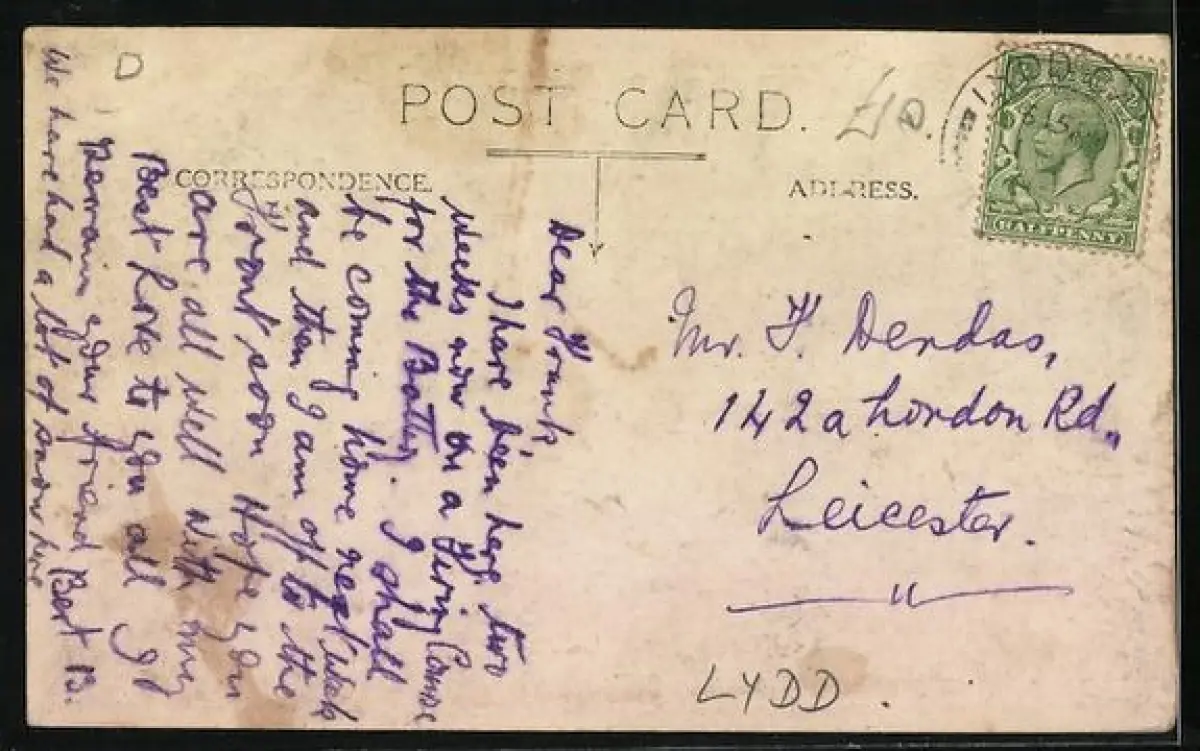 D
POST CARD.
£1 D.
CORRESPONDENCE.
ADDRESS.
LYDD CA
15
HALFPENNY
Dear Frank,
I have been here two
weeks now on a Firing Course
for the Battry. I shall
be coming home next week
and then I am off to the
"Front" soon Hope you
are all well with my
Best Love to you all I
Remain your friend Bert B.
We have had a lot of snow here
Mr. F. Dendas,
142a London Rd.,
Leicester.
LYDD.